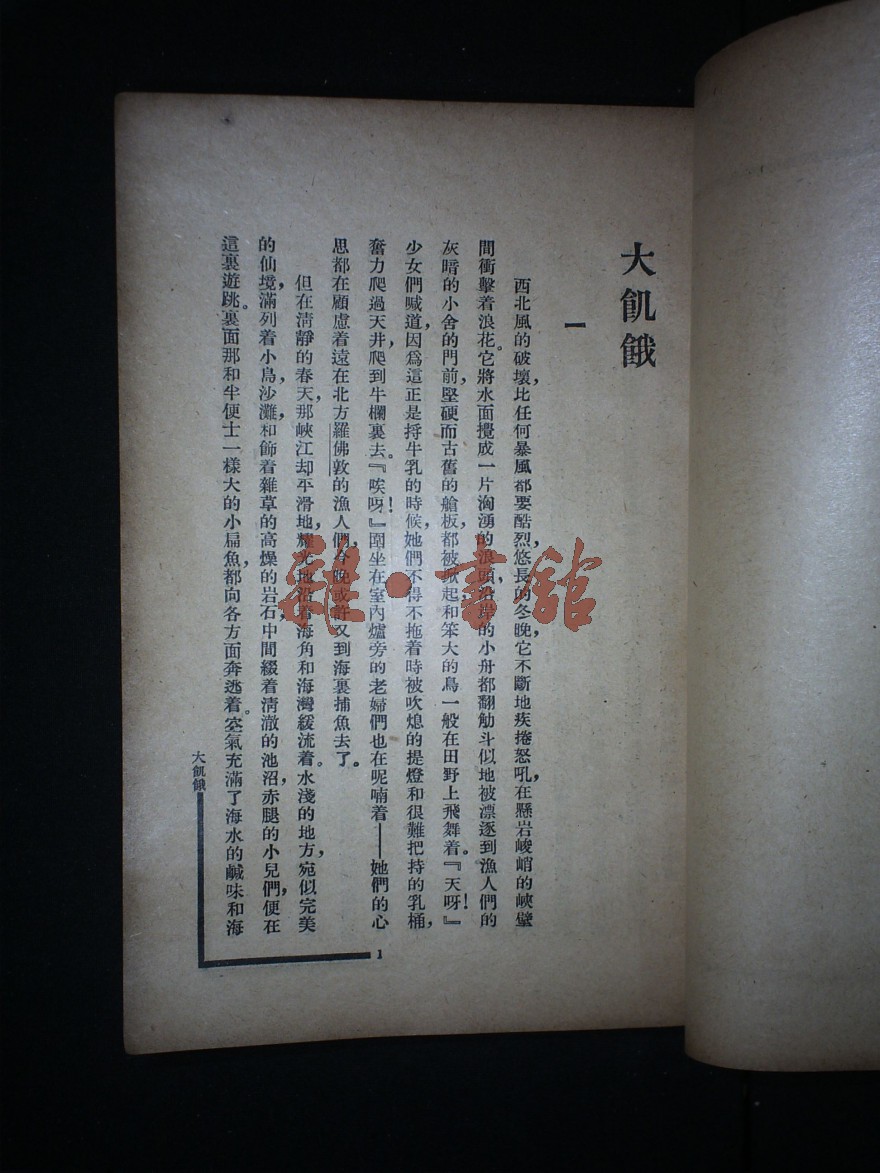 大飢餓
一
西北風的破壞，比任何暴風都要酷烈。悠長的冬晚，它不斷地疾捲怒吼，在懸岩峻峭的峽壁
間衝擊着浪花。它將水面攪成一片洶湧的浪頭，沿岸的小舟都翻觔斗似地被漂逐到漁人們的
灰暗的小舍的門前，堅硬而古舊的艙板，都被掀起和笨大的鳥一般在田野上飛舞着。『天呀！』
少女們喊道，因爲這正是捋牛乳的時候，她們不得不拖着時被吹熄的提燈和很難把持的乳桶，
奮力爬過天井，爬到牛欄裏去。『唉呀！』圍坐在室內爐旁的老婦們也在呢喃着——她們的心
思都在顧慮着遠在北方羅佛敦的漁人們，今晚或許又到海裏捕魚去了。
但在清靜的春天，那峽江却平滑地，耀光地沿着海角和海灣緩流着。水淺的地方，宛似完美
的仙境，滿列着小島，沙灘，和飾着雜草的高燥的岩石，中間綴着清澈的池沼，赤腿的小兒們，便在
這裏遊跳。裏面那和半便士一樣大的小扁魚，都向各方面奔逃着。空氣充滿了海水的鹹味和海
大飢餓
1
雜·書館